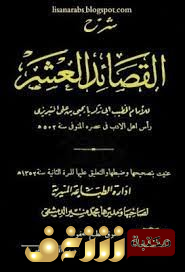 lisanarabs.blogspot.com
شرح
القصائد العشر
للامام الخطيب ابى زكريا يحيى بن على التبريزى
رأس اهل الأدب فى عصره المتوفى سنة ٥٠٢ هـ
عنيت بتصحيحها وضبطها والتعليق عليها للمرة الثانية سنة ١٣٥٢ هـ
ادارة الطباعة المنيرية
لصاحبها ومديرها محمد منير الدمشقى